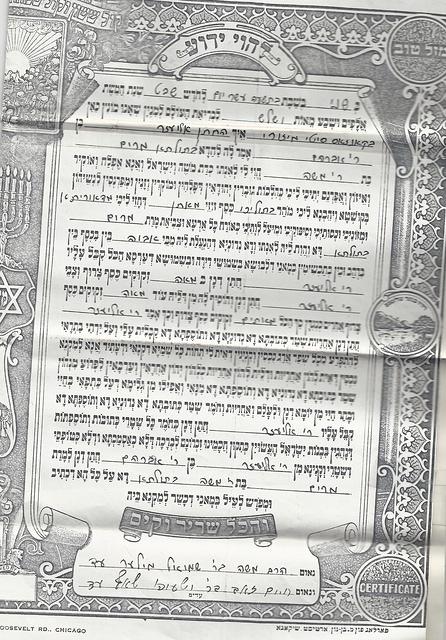 מזל טוב
להוי ידוע
ב שני בשבת בתשעה עשר יום לחדש שבט שנת חמשת
אלפים ושבע מאות ושלש לבריאת העולם למנין שאנו מונין כאן
בקאנזאס סיטי מיזורי איך החתן אליעזר בן
ר' אברהם אמר לה להדא בתולתא מרים
בת ר' משה הוי לי לאנתו כדת משה וישראל ואנא אפלח ואוקיר
ואיזון ואפרנס יתיכי ליכי כהלכות גוברין יהודאין דפלחין ומוקרין וזנין ומפרנסין לנשיהון
בקושטא ויהבנא ליכי מהר בתוליכי כסף זוזי מאתן דחזי ליכי מדאוריתא
ומזוניכי וכסותיכי וסיפוקיכי ומיעל לותיכי כאורח כל ארעא וצביאת מרת מרים
בתולתא דא והות ליה לאנתו ודא נדוניא דהנעלת ליה מבי אבוה בין בכסף בין
בזהב בין בתכשיטין במאני דלבושא בשמושי דירה ובשמושא דערסא הכל קבל עליו
ר' אליעזר חתן דנן ב מאה זקוקים כסף צרוף וצבי
ר' אליעזר חתן דנן והוסיף לה מן דיליה עוד מאה זקוקים כסף
צרוף אחרים כנגדן סך הכל מאתים זקוקים כסף צרוף וכך אמר ר' אליעזר
חתן דנן אחריות שטר כתובתא דא נדוניא דא ותוספתא דא קבלית עלי ועל ירתי בתראי
להתפרע מכל שפר ארג נכסין וקנינין דאית לי תחות כל שמיא דקנאי ודעתיד אנא למקנא
נכסין דאית להון אחריות ודלית להון אחריות כלהון יהון אחראין וערבאין לפרוע מנהון
שטר כתובתא דא נדוניא דא ותוספתא דא מנאי ואפילו מן גלימא דעל כתפאי בחיי
ובתר חיי מן יומא דנן ולעלם ואחריות וחומר שטר כתובתא דא נדוניא דא ותוספתא דא
קבל עליו ר' אליעזר חתן דנן כחומר כל שטרי כתובות ותוספתות
דנהגין בבנות ישראל העשויין כתקון חכמינו זכרונם לברכה דלא כאסמכתא ודלא כטופסי
דשטרי וקנינא מן ר' אליעזר בן ר' אברהם חתן דנן למרת
מרים בת ר' משה בתולתא דא על כל מא דכתיב
ומפורש לעיל במאני דכשר למקניא ביה
והכל שריר וקים
נאום הרב משה בר' שמואל עד
ונאום חיים זאב בר' ישעיהו עד
עדים
CERTIFICATE
ROOSEVELT RD., CHICAGO